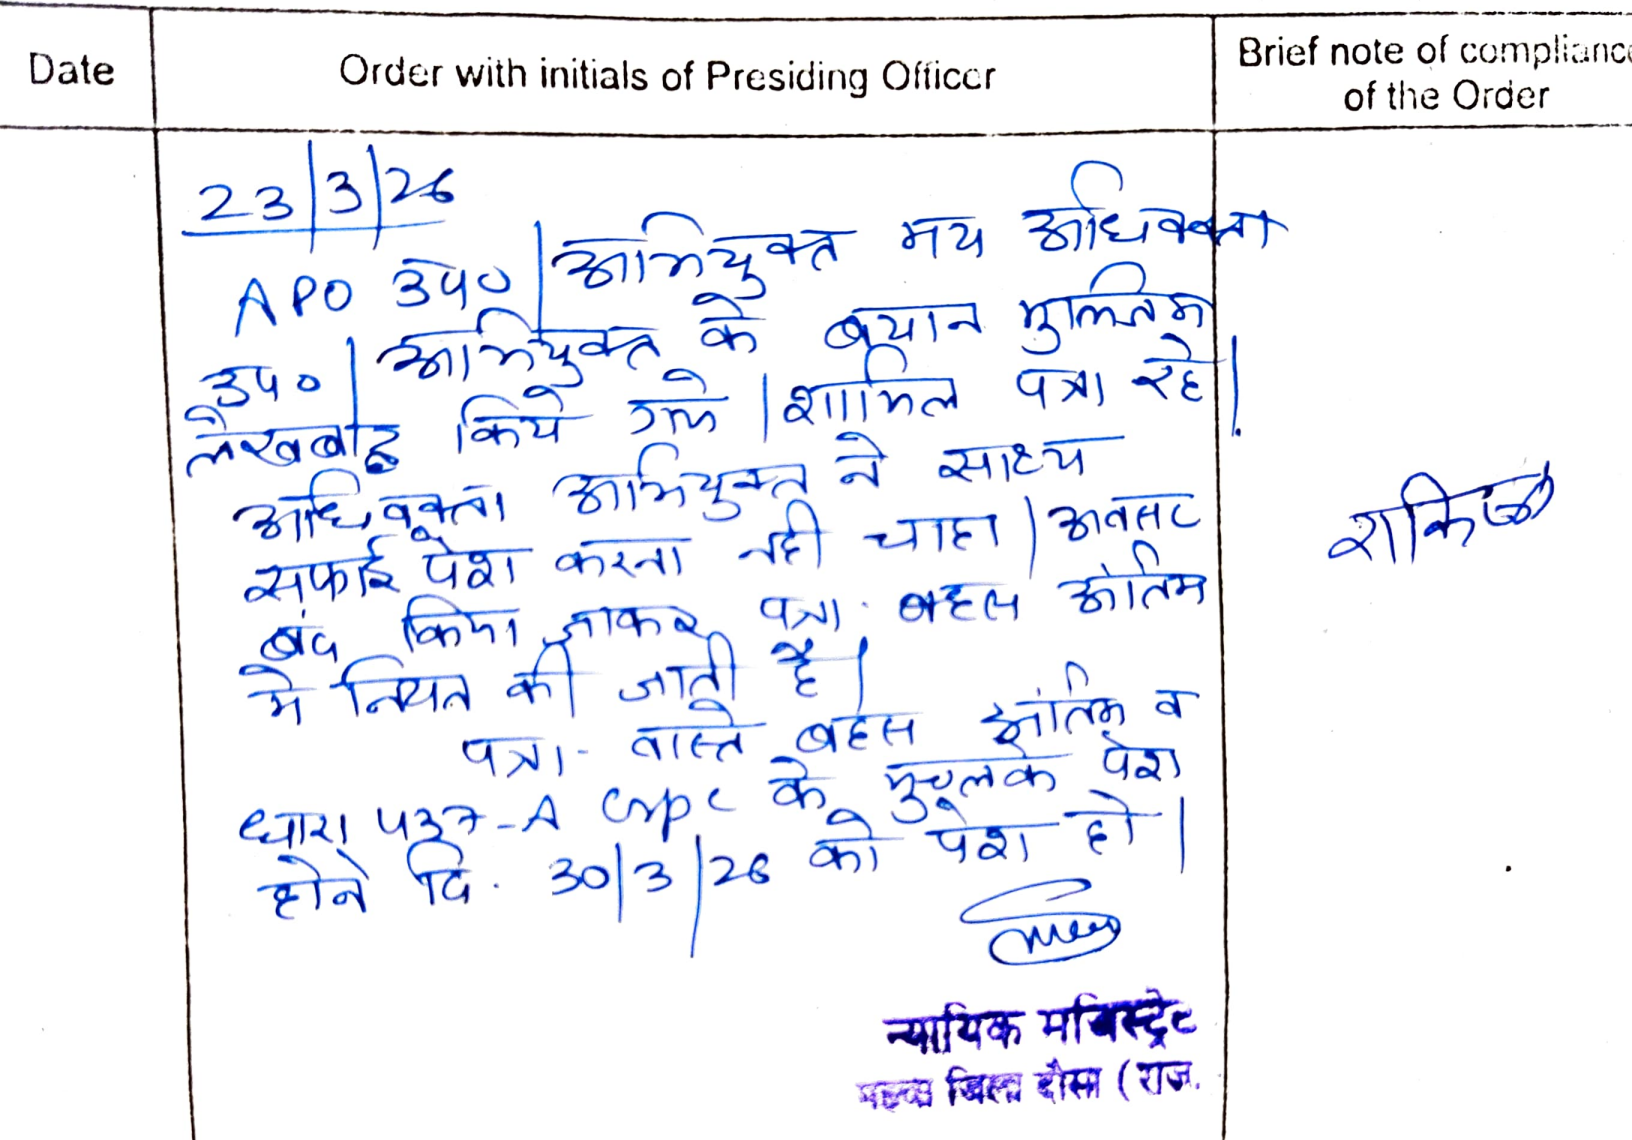 Date
Order with initials of Presiding Officer
Brief note of compliance
of the Order
23/3/26
APO उप० | अभियुक्त मय अधिवक्ता
उप० | अभियुक्त के बयान मुल्जिम
लेखबद्ध किये गये | शामिल पत्रा रहे |
अधिवक्ता अभियुक्त ने साक्ष्य
सफाई पेश करना नही चाहा | अवसर
बंद किया जाकर पत्रा. बहस अंतिम
मे नियत की जाती है |
पत्रा. वास्ते बहस अंतिम व
धारा 437-A crpc के मुचलके पेश
होने दि. 30/3/26 को पेश हो |
न्यायिक मजिस्ट्रेट
जिला दौसा (राज.